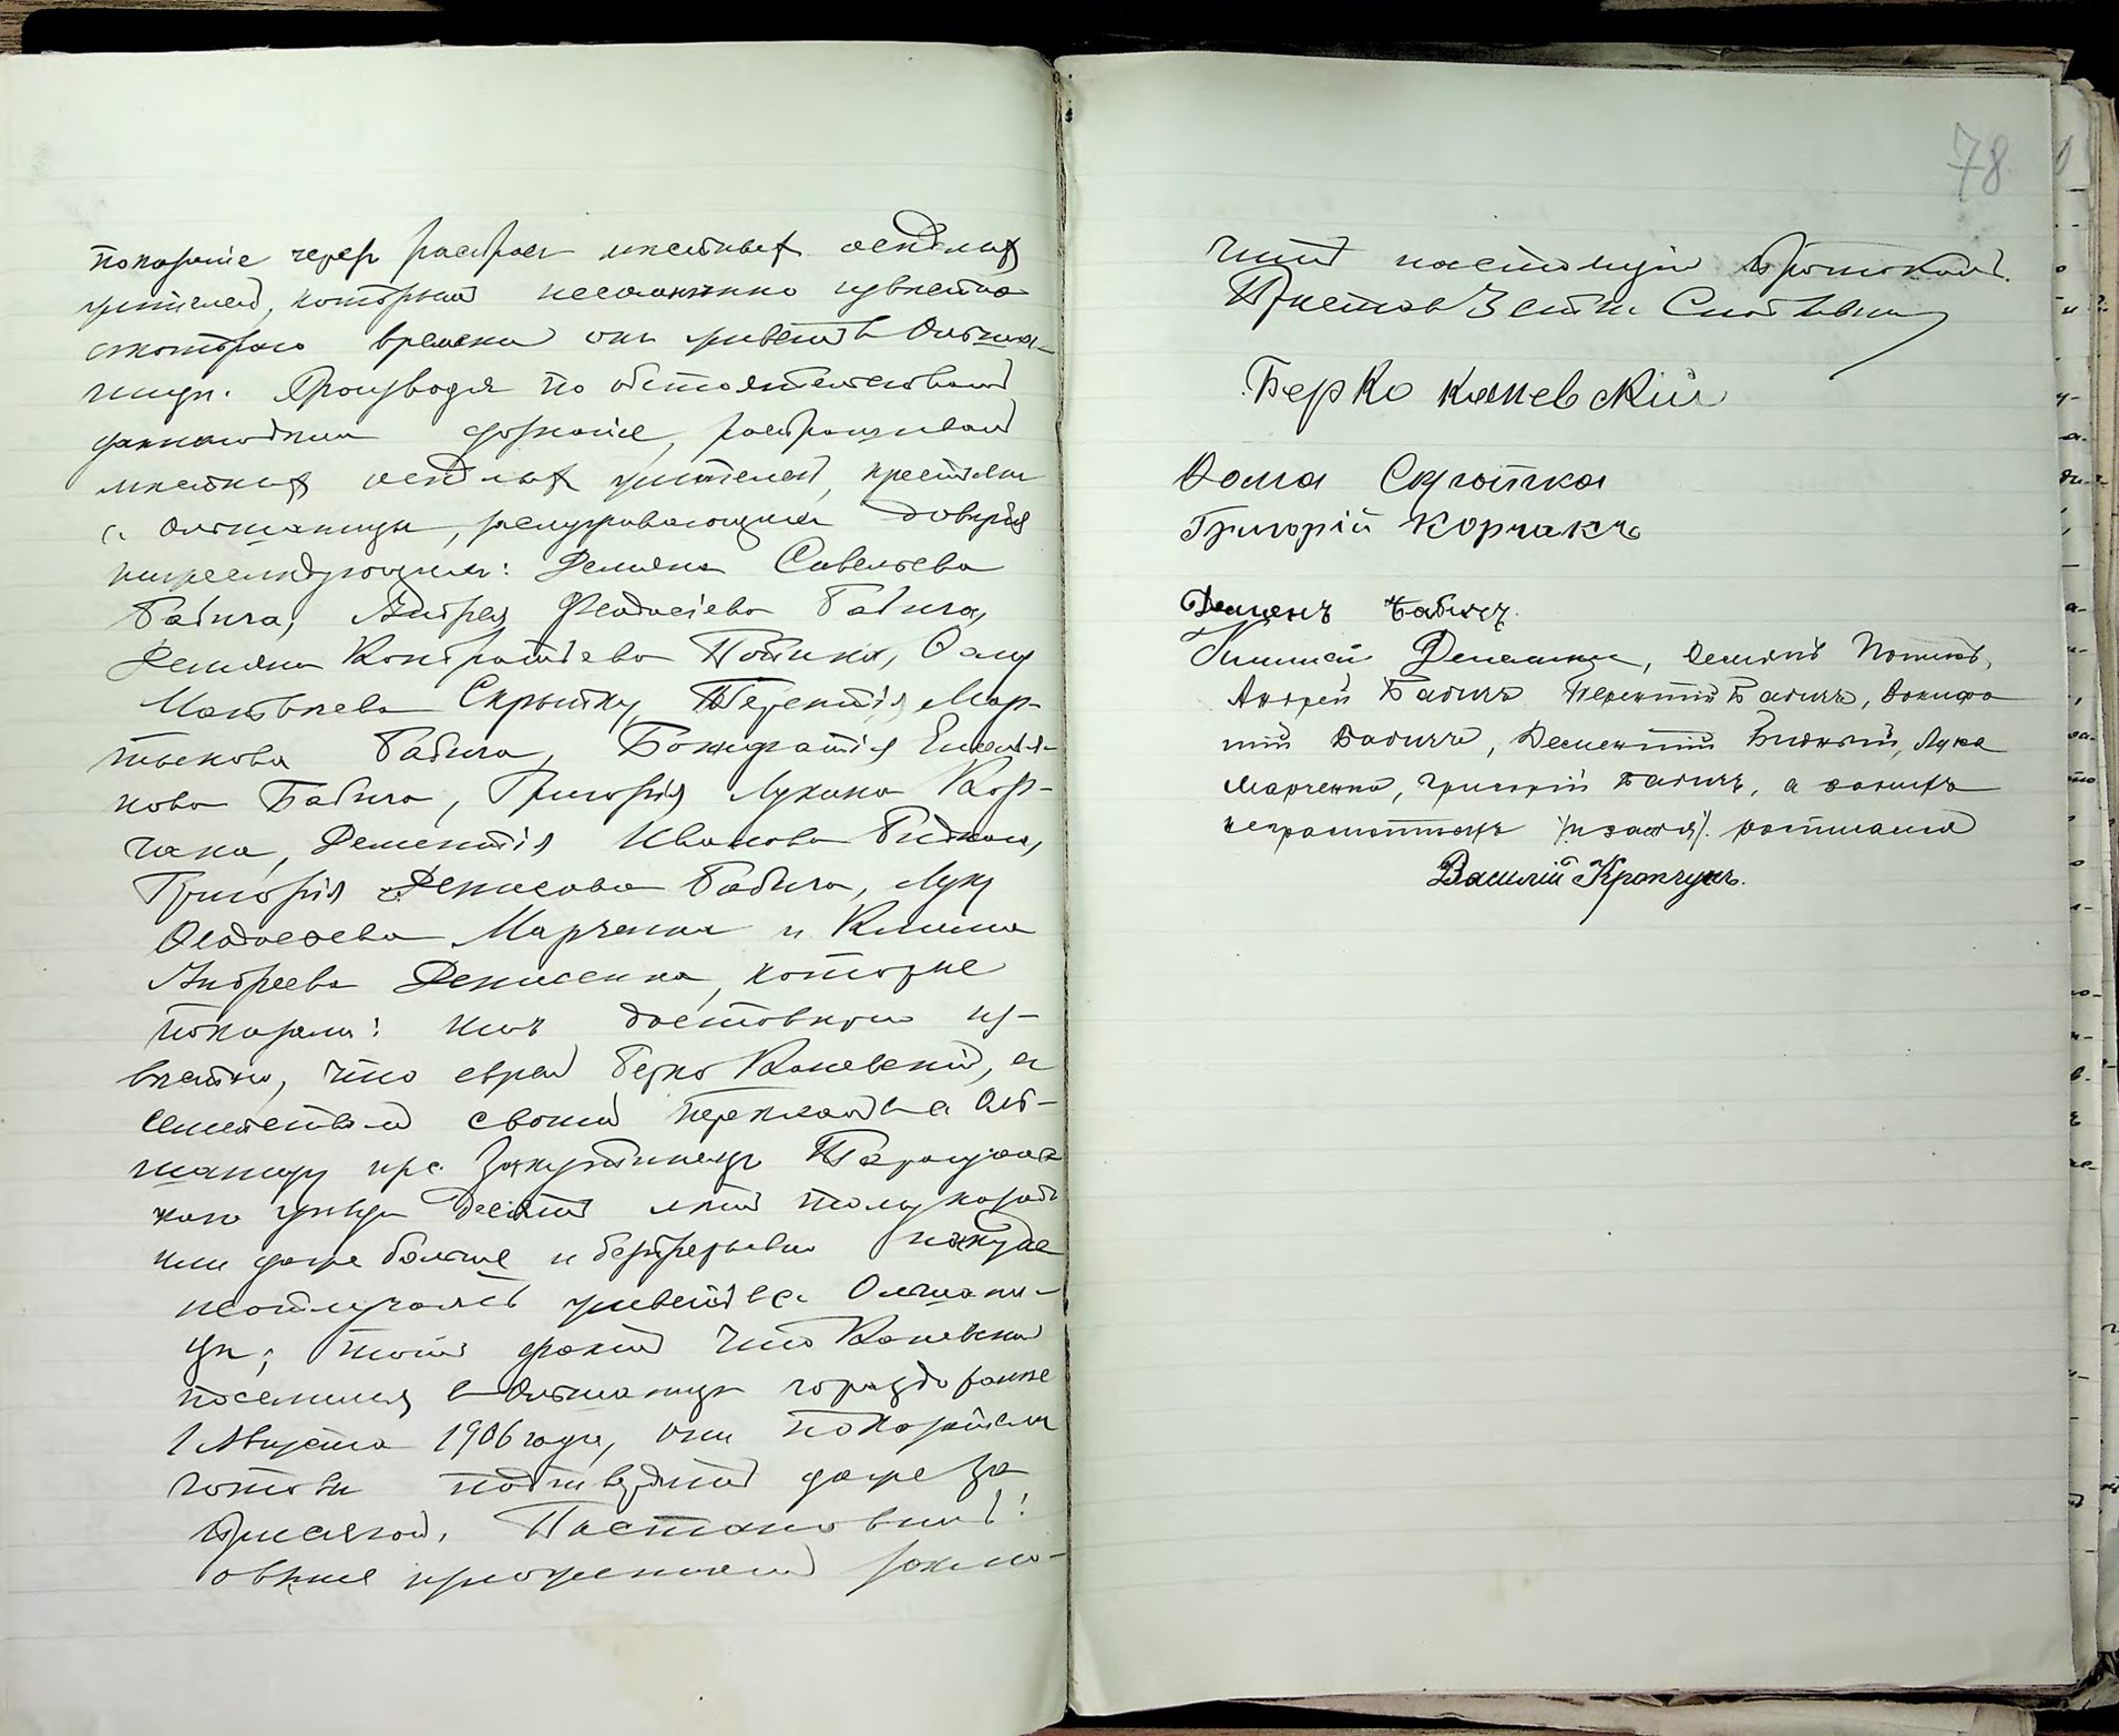 показаніе черезъ распросъ мѣстныхъ осѣдлыхъ
жителей, которымъ несомнѣнно извѣстно
съ котораго времени онъ живетъ въ Ольша-
ницѣ. Производя по обстоятельствамъ
дознаніе, распрашивалъ
мѣстныхъ осѣдлыхъ жителей, крестьянъ
с. Ольшаницы, заслуживающихъ довѣрія
нижеслѣдующихъ: Демьяна Савельева
Бабича, Андрея Феодосіева Бабича,
Демьяна Кондратьева Потіика, Ѳому
Матвѣева Скрыпку, Терентія Мар-
тынова Бабича, Бонифатія Емелья-
нова Бабича, Григорія Лукина Кор-
чака, Дементія Иванова Бидного,
Григорія Денисова Бабича, Луку
Ѳеодосеева Марченка и Клима
Андреева Денисенка, которые
показали: имъ достовѣрно из-
вѣстно, что еврей Берко Каневскій, съ
семействомъ своимъ переѣхалъ въ с. Оль-
шаницу изъ с. Таращанс-
каго уѣзда десять лѣтъ тому назадъ
или даже больше и безпрерывно никуда
не отлучаясь живетъ въ с. Ольшани-
цѣ; тотъ фактъ что Каневскій
поселился въ Ольшаницѣ гораздо ранѣе
1 Августа 1906 года, они показатели
готовы подтвердить даже за
присягой. Постановилъ:
обо всемъ вышеизложенномъ заклю-
78
чить настоящій протоколъ.
Приставъ 3 стана
Берко каневскій
Ѳома Скрыпка
Григорій Корчакъ
Демянъ Бабичъ.
Климъ Денисенко, Демьянъ Потикъ,
Андрей Бабичъ Терентій Бабичъ, Бонифа
тій Бабичъ, Дементій Бидный, Лука
Марченко, Григорій Бабичъ, а за нихъ
неграмотныхъ и за себя росписался
Василій Кравчукъ.